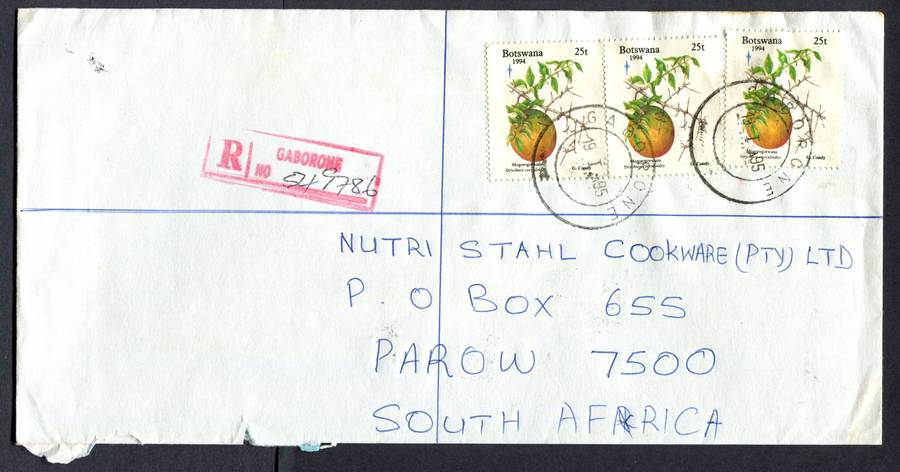 Botswana 25t
1994
Mogorogorwana
Strychnos cocculoides
G. Condy
Botswana 25t
1994
Mogorogorwana
Strychnos cocculoides
G. Condy
Botswana 25t
1994
Mogorogorwana
Strychnos cocculoides
G. Condy
GABORONE
GABORONE
R GABORONE
NO 549786
NUTRI STAHL COOKWARE (PTY) LTD
P. O BOX 655
PAROW 7500
SOUTH AFRICA